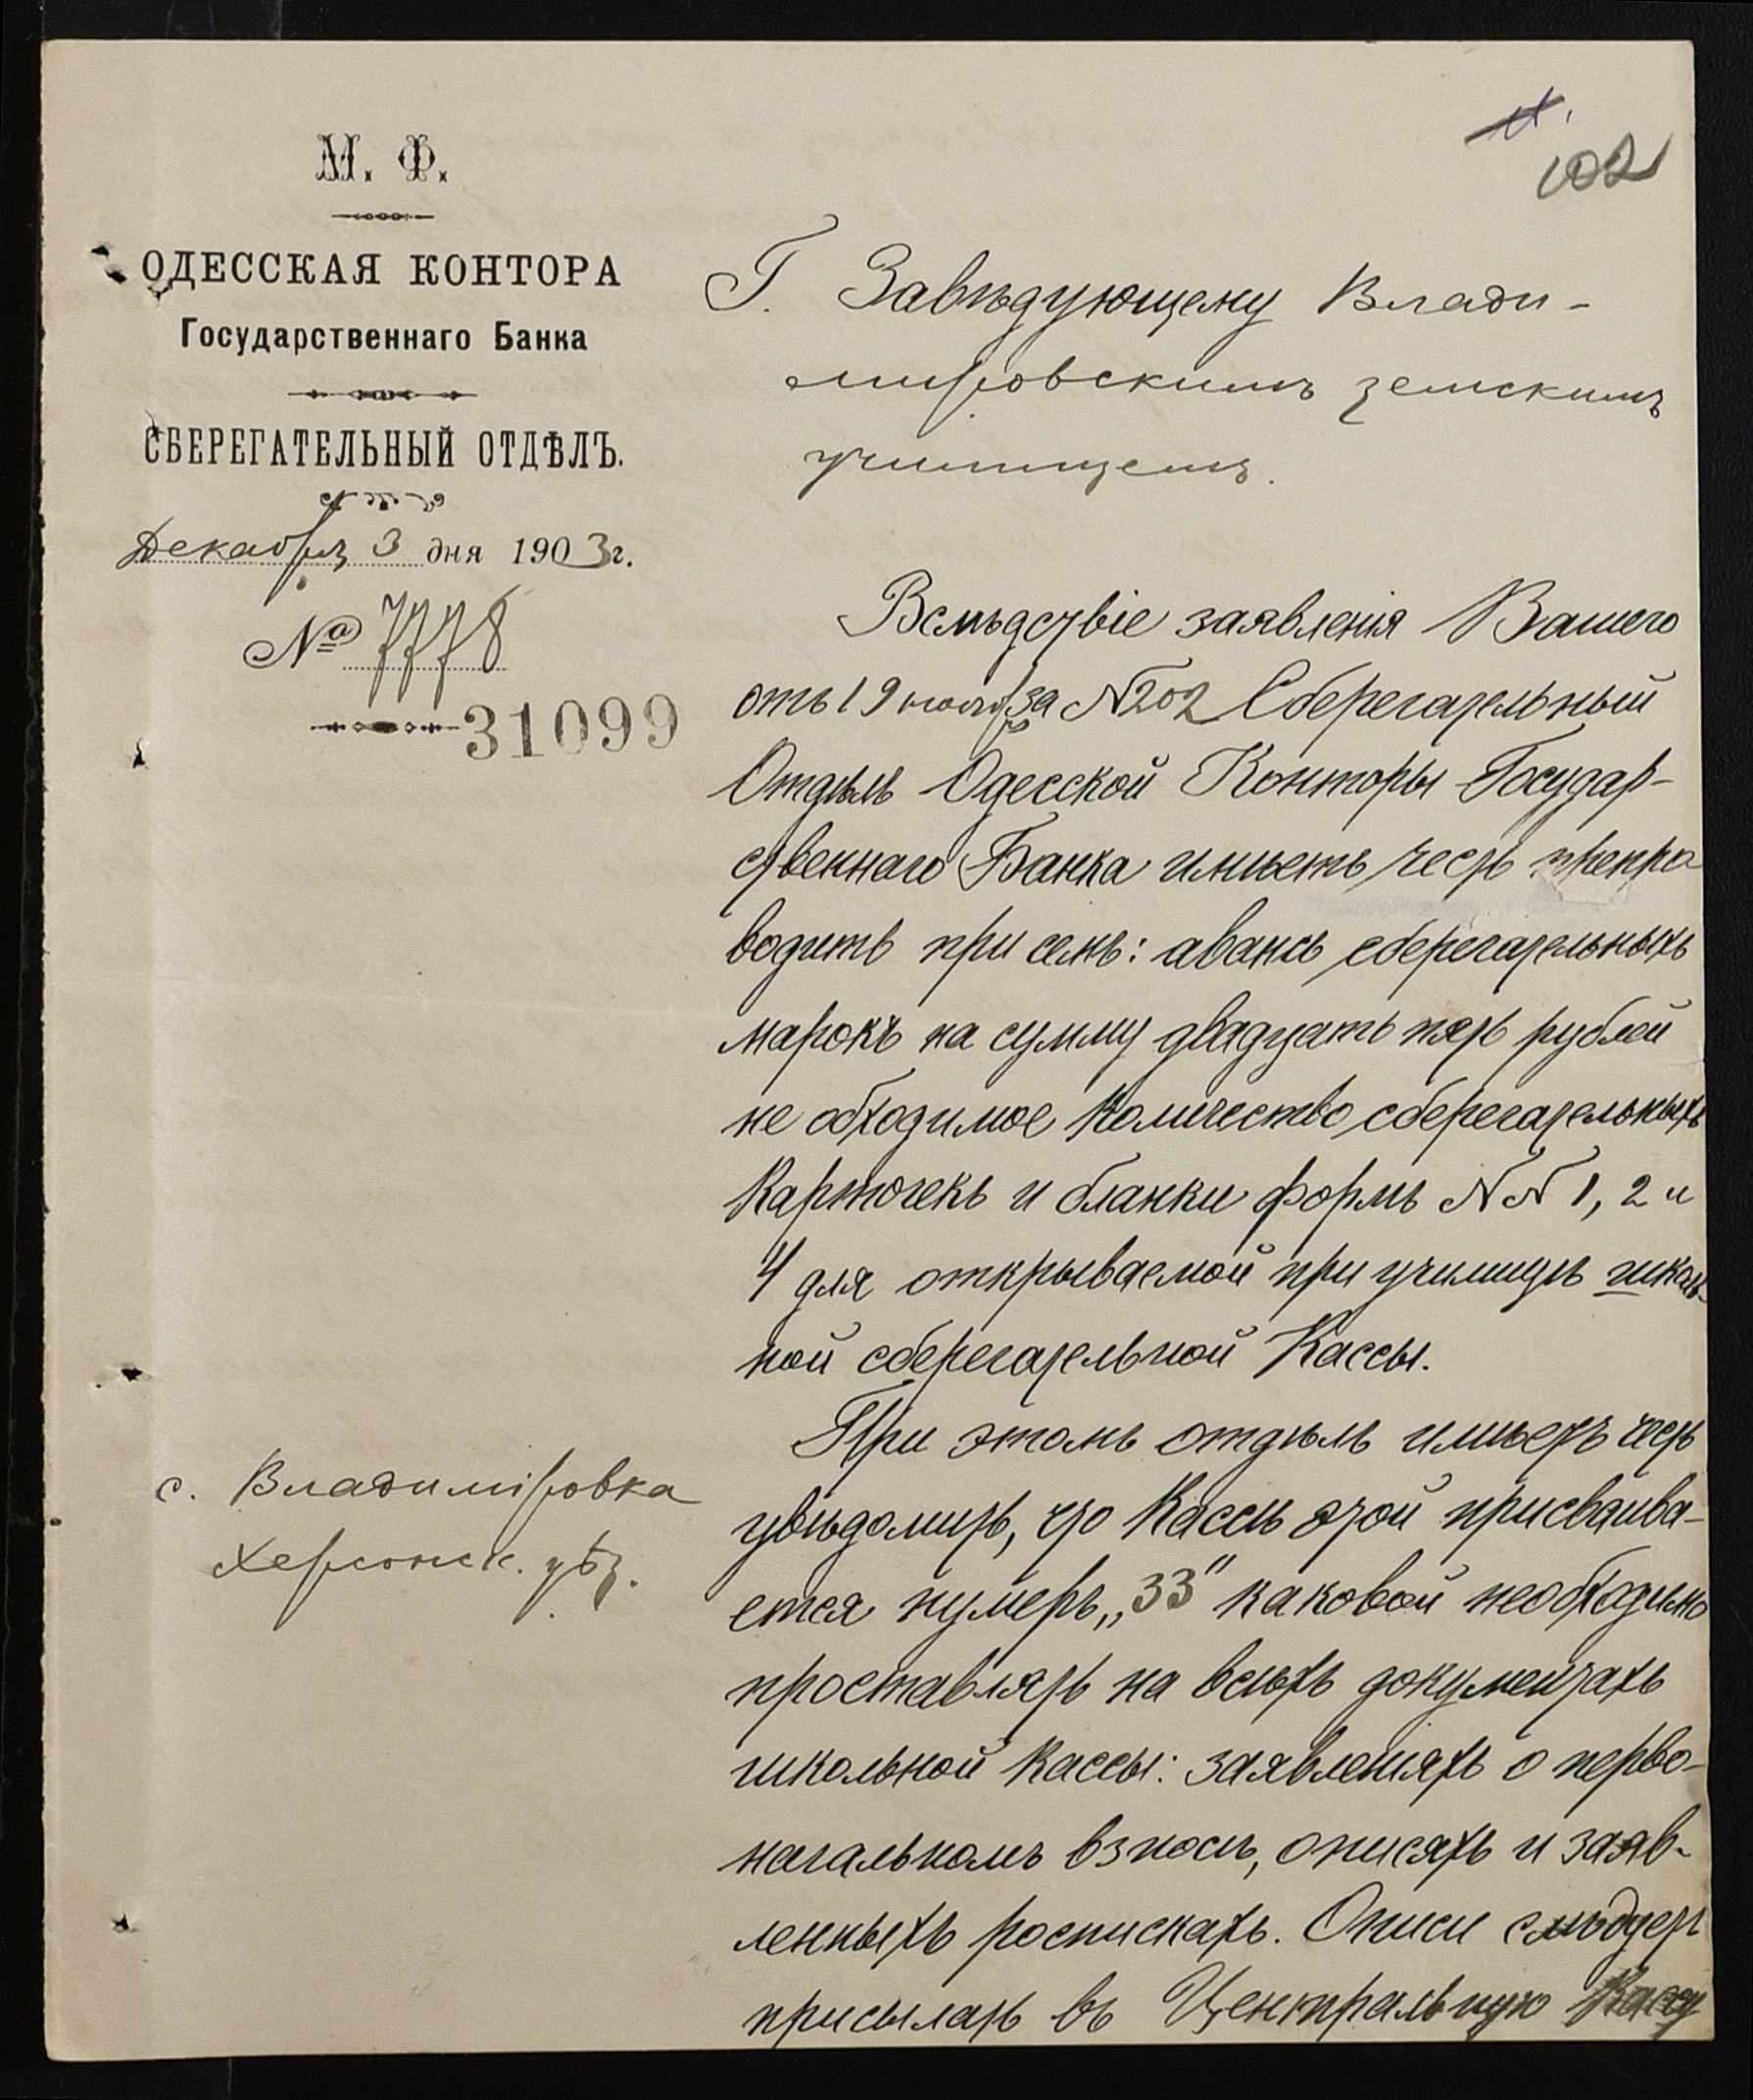 102
М. Ф.
ОДЕССКАЯ КОНТОРА
Государственнаго Банка
СБЕРЕГАТЕЛЬНЫЙ ОТДѢЛЪ.
Декабря 3 дня 1903 г.
№ 7778
31099
Г. Завѣдующему Влади-
мировскимъ земскимъ
училищемъ.
Вслѣдствіе заявленія Вашего
отъ 19 ноября за № 202 Сберегательный
Отдѣлъ Одесской Конторы Государ-
ственнаго Банка имѣетъ честь препро
водить при семъ: авансъ сберегательныхъ
марокъ на сумму двадцать пять рублей
не обходимое количество сберегательныхъ
карточекъ и бланки формъ №№ 1, 2 и
4 для открываемой при училищѣ школь-
ной сберегательной Кассы.
При этомъ отдѣлъ имѣетъ честь
увѣдомить, что Кассѣ этой присваива-
ется нумеръ „33" каковой необходимо
проставлять на всѣхъ документахъ
школьной кассы: заявленіяхъ о перво-
начальномъ взносѣ, описяхъ и заяв-
ленныхъ роспискахъ. Описи слѣдуетъ
присылать въ Центральную Кассу
с. Владиміровка
Херсонск. уѣз.